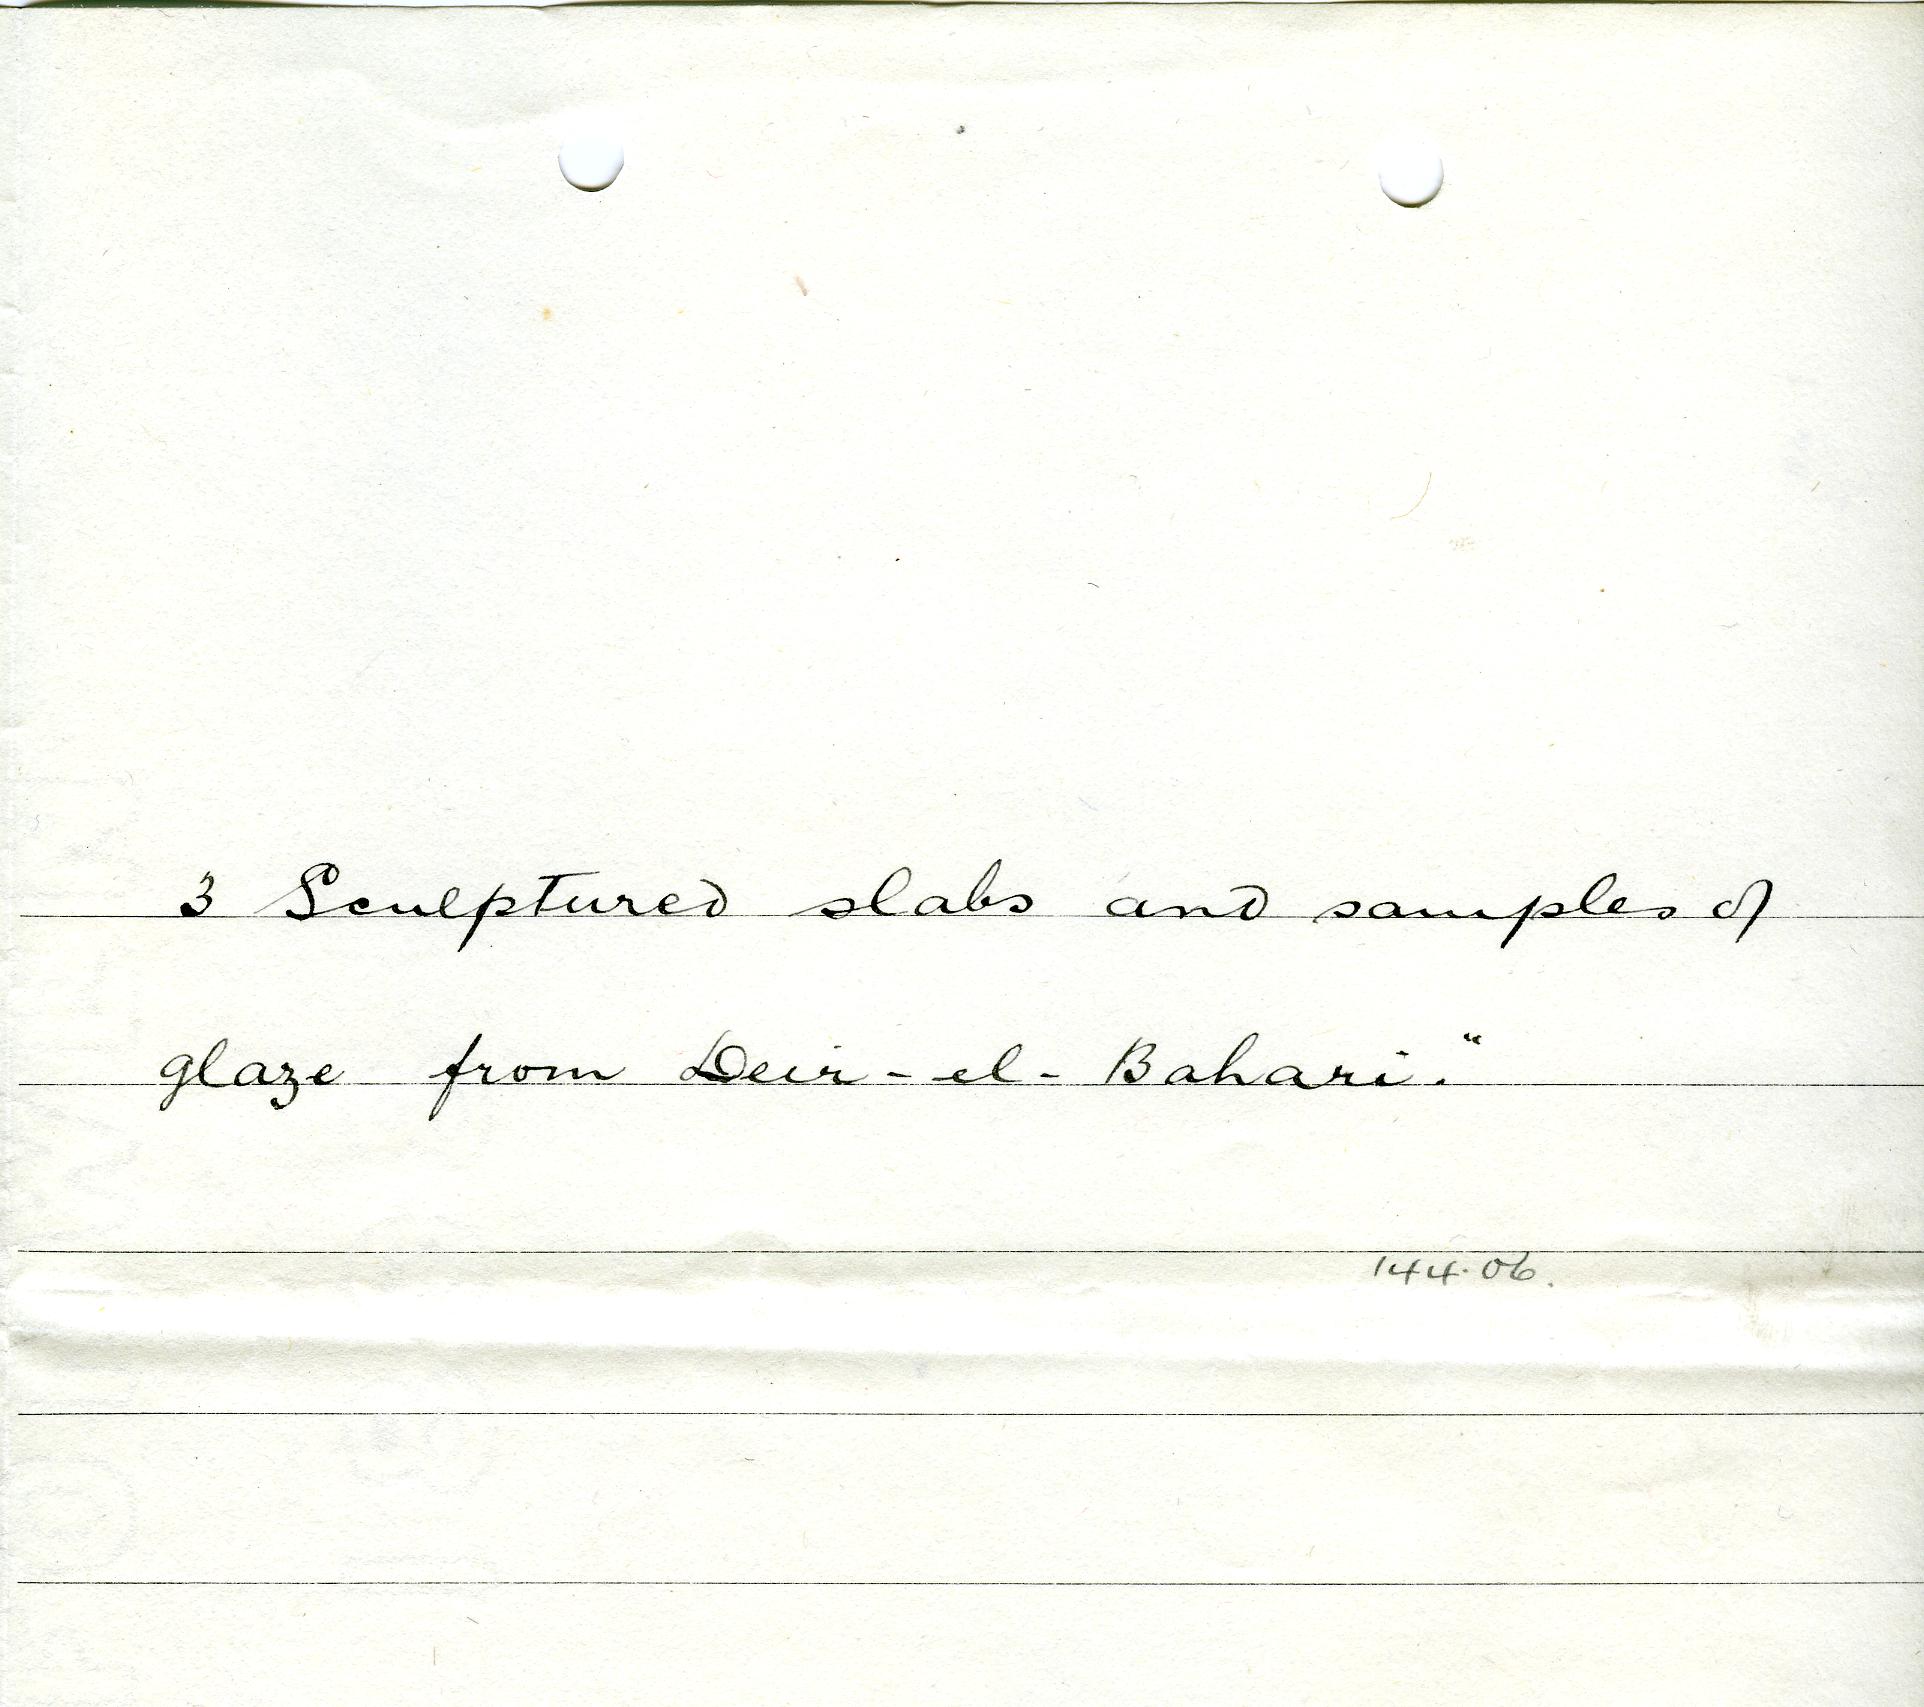 3 Sculptured slabs and samples of
glaze from Deir-el-Bahari."
144.06.